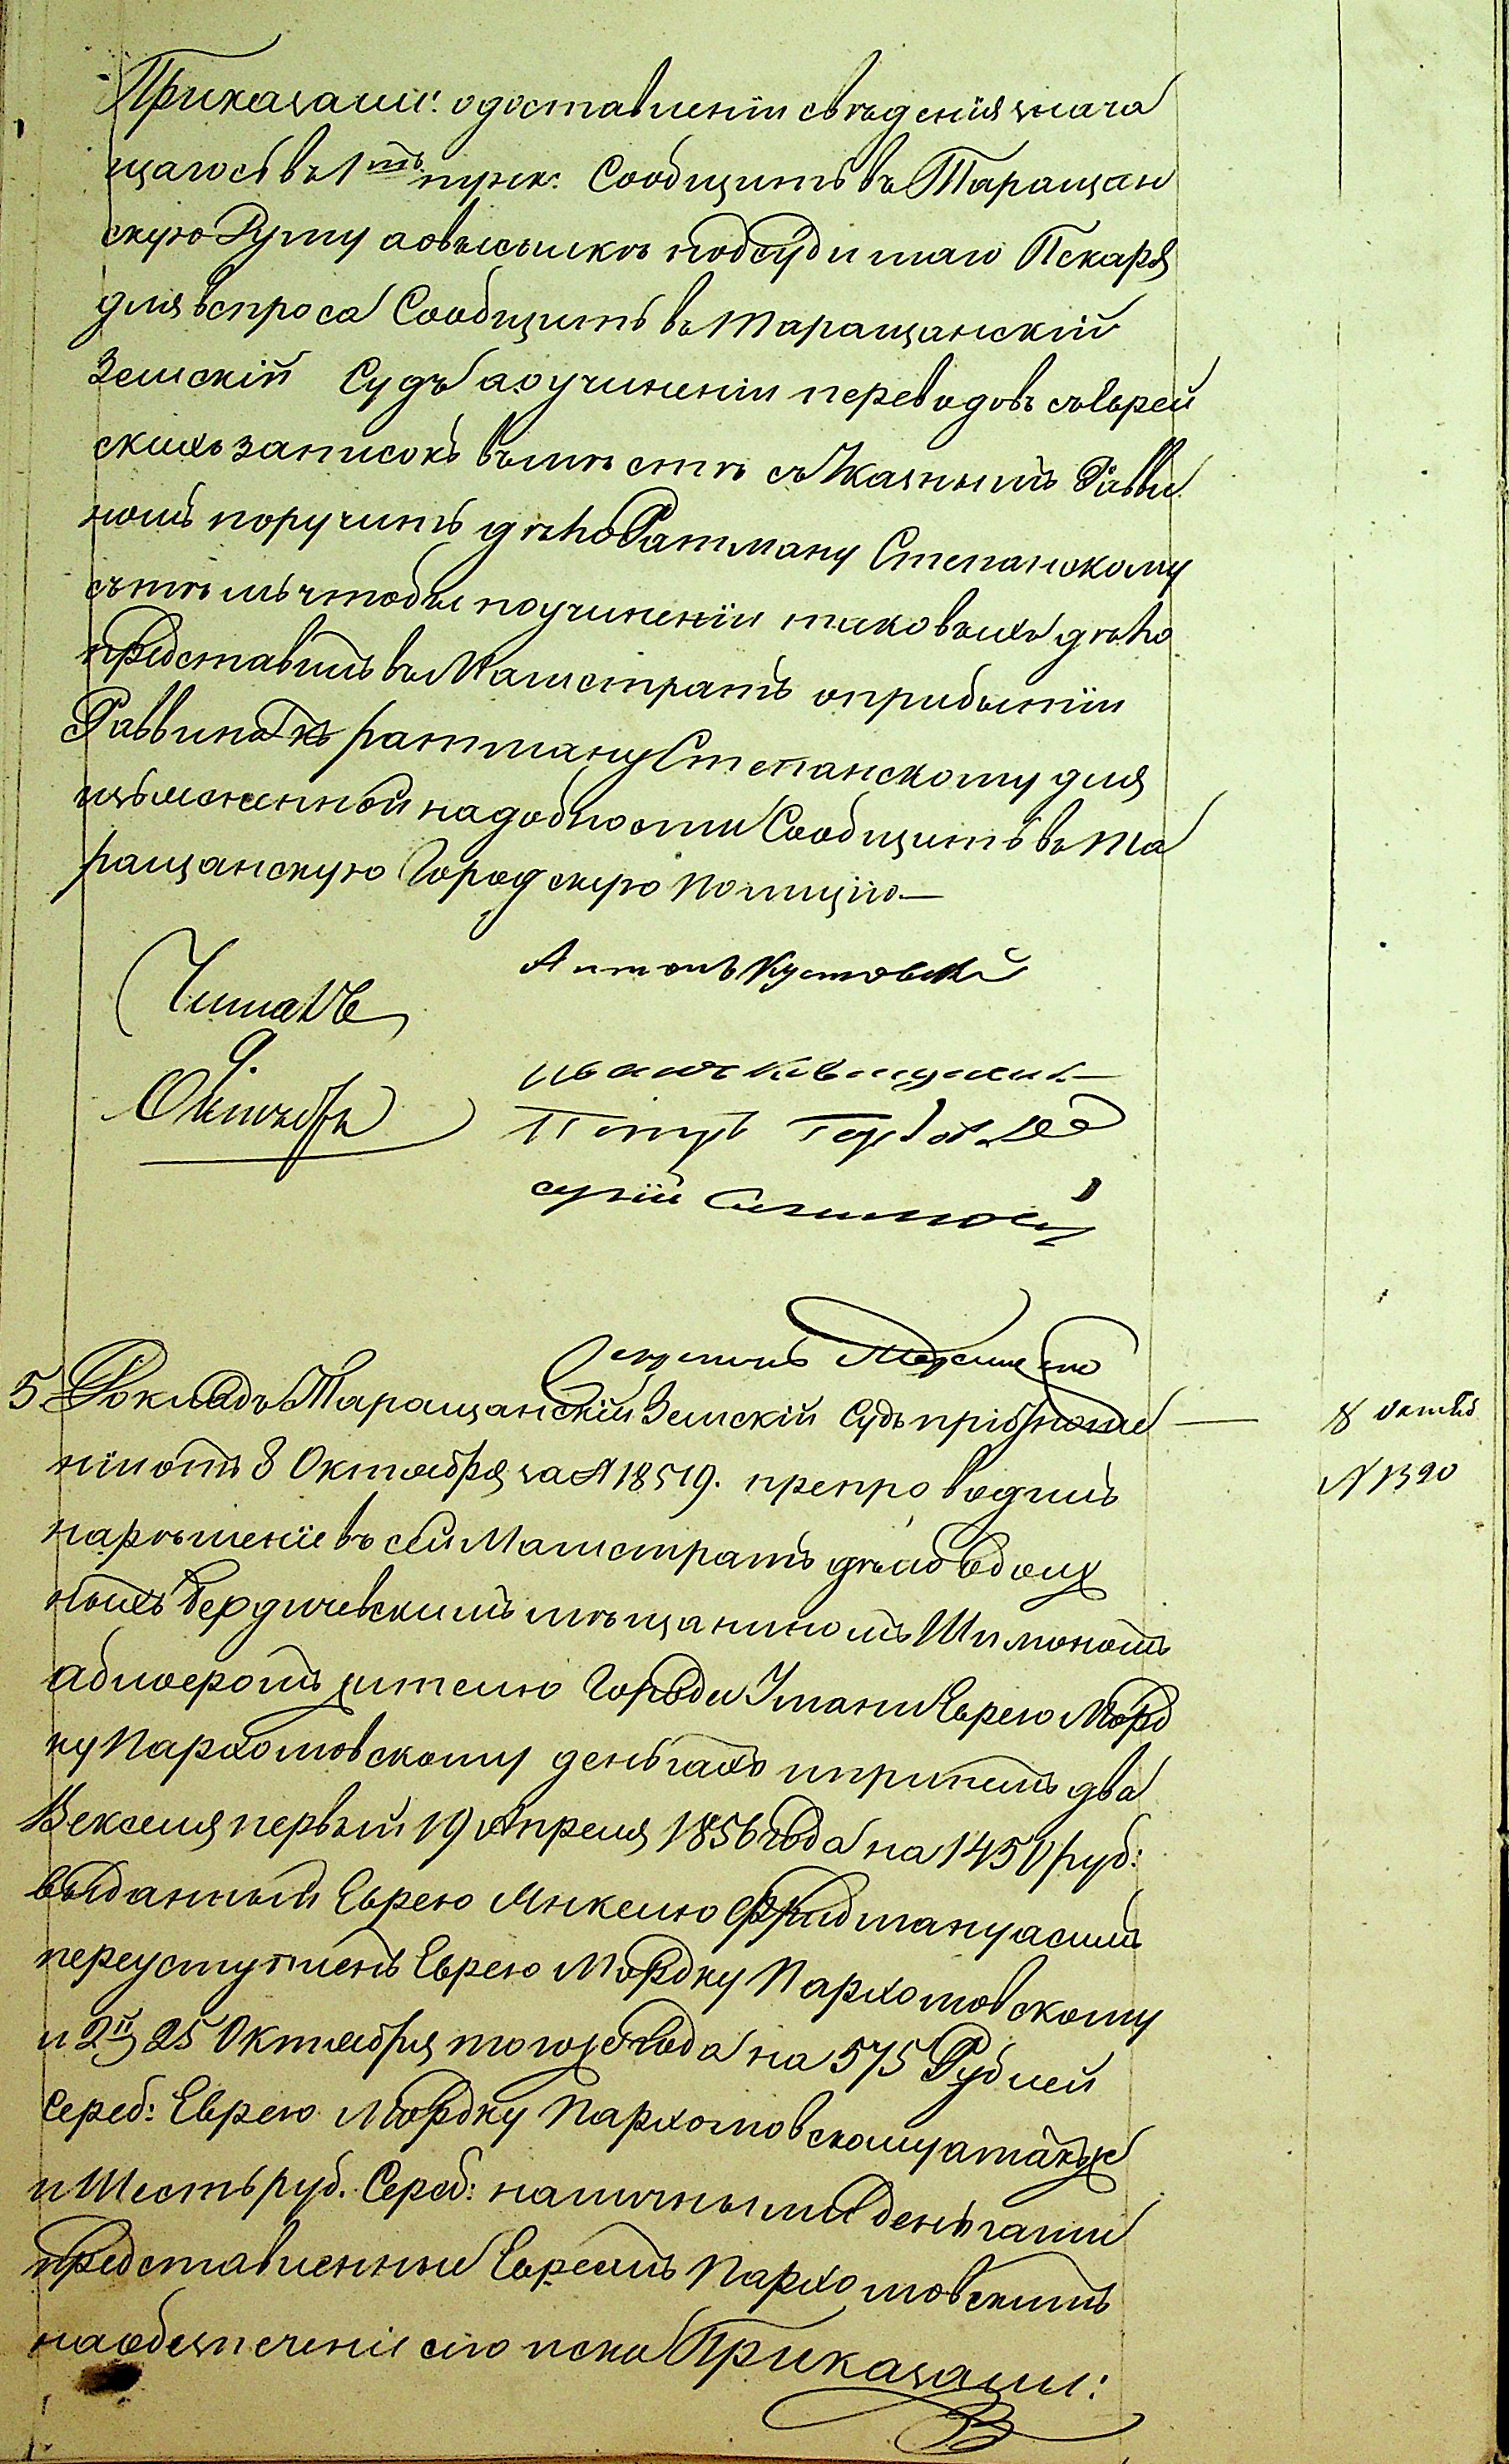 Приказали: о доставленіи свѣденія знача
щагося въ 1мъ пунк. Сообщить въ Таращан
скую Думу а о высылкѣ подсудимаго Пскаря
для вспроса Сообщить въ Таращанскій
Земскій Судъ а о учиненіи переводовъ съ Еврей
скихъ записокъ вмѣстѣ съ Казнымъ Равви
номъ поручить дѣло Ратману Степанскому
съ тѣмъ чтобы по учиненіи таковыхъ дѣло
представилъ въ Магистратъ о прибытіи
Раввина къ ратману Степанскому для
изъясненной надобности Сообщить въ Та
ращанскую Городскую Полицію —
Антонъ Кустовскій
Читалъ
9. Октября
Петръ
Секретарь
5 Докладъ Таращанскій Земскій Судъ при отноше —
ніи отъ 8 Октября за № 18519. препроводилъ
на рѣшеніе въ сей Магистратъ дѣло о долж
ныхъ Бердичевскимъ мѣщаниномъ Шимономъ
жителю Города Умани Еврею Морд
ку Пархомовскому деньгахъ и при немъ два
Векселя первый 19 Апреля 1856 года на 1450 руб:
выданный Еврею Янкелю Фридману а симъ
переуступленъ Еврею Мордку Пархомовскому
и 2й 25 Октября того же года на 575 Рублей
Сереб: Еврею Мордку Пархомовскому а также
и Шесть руб. Сереб: наличными деньгами
представленные Евреемъ Пархомовскимъ
на обезпеченіе сего иска Приказали:
8 октяб
№ 1390